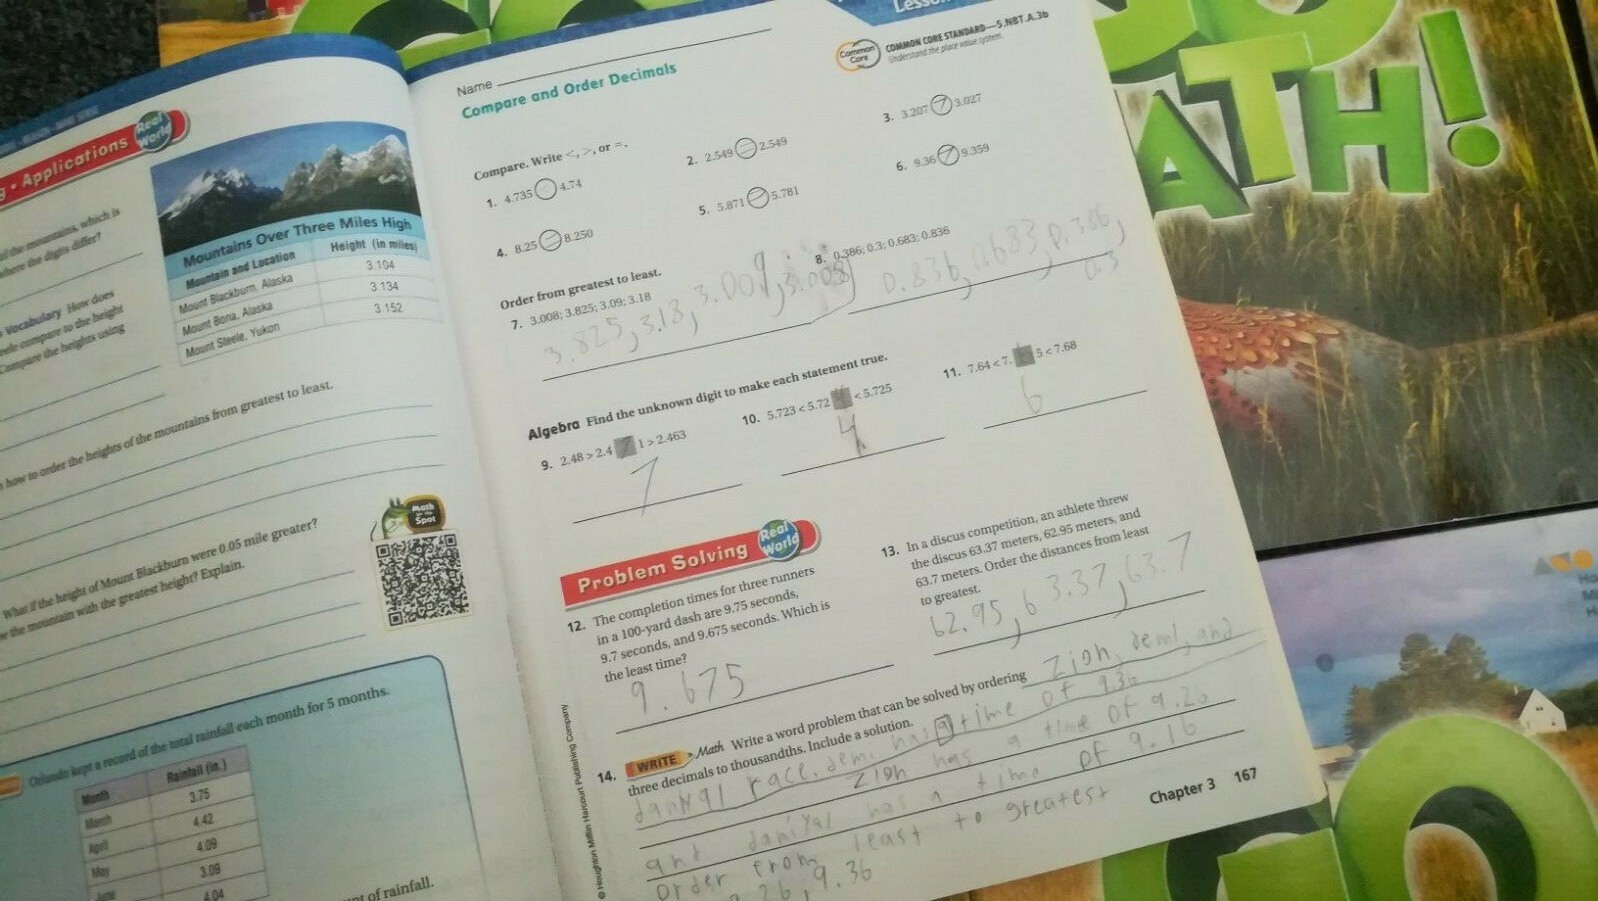 Applications
Real World
of the mountains, which is
where the digits differ?
Vocabulary How does
compare to the height
Compare the heights using
Mountains Over Three Miles High
Mountain and Location Height (in miles)
Mount Blackburn, Alaska 3.104
Mount Bona, Alaska 3.134
Mount Steele, Yukon 3.152
how to order the heights of the mountains from greatest to least.
Math on the Spot
What if the height of Mount Blackburn were 0.05 mile greater?
the mountain with the greatest height? Explain.
Orlando kept a record of the total rainfall each month for 5 months.
Month Rainfall (in.)
March 3.75
April 4.42
May 4.09
June 3.09
4.04
of rainfall.
Name
Compare and Order Decimals
Common Core
COMMON CORE STANDARD—5.NBT.A.3b
Understand the place value system.
Compare. Write <, >, or =.
1. 4.735 4.74
2. 2.549 = 2.549
3. 3.207 > 3.027
4. 8.25 = 8.250
5. 5.871 > 5.781
6. 9.36 > 9.359
Order from greatest to least.
7. 3.008; 3.825; 3.09; 3.18
3.825, 3.18, 3.009, 3.008
8. 0.386; 0.3; 0.683; 0.836
0.836, 0.683, 0.386,
0.3
Algebra Find the unknown digit to make each statement true.
9. 2.48 > 2.4 7 1 > 2.463
7
10. 5.723 < 5.72 4 < 5.725
4
11. 7.64 < 7. 5 < 7.68
6
Problem Solving Real World
12. The completion times for three runners
in a 100-yard dash are 9.75 seconds,
9.7 seconds, and 9.675 seconds. Which is
the least time?
9.675
13. In a discus competition, an athlete threw
the discus 63.37 meters, 62.95 meters, and
63.7 meters. Order the distances from least
to greatest.
62.95, 63.37, 63.7
14. WRITE Math Write a word problem that can be solved by ordering
three decimals to thousandths. Include a solution.
Zion, demi, and
race. demi has a time of 9.36
Zion has a time of 9.26
and daniyal has a time of 9.16
order from least to greatest
9.36
© Houghton Mifflin Harcourt Publishing Company
Chapter 3 167
GO
MATH!
GO